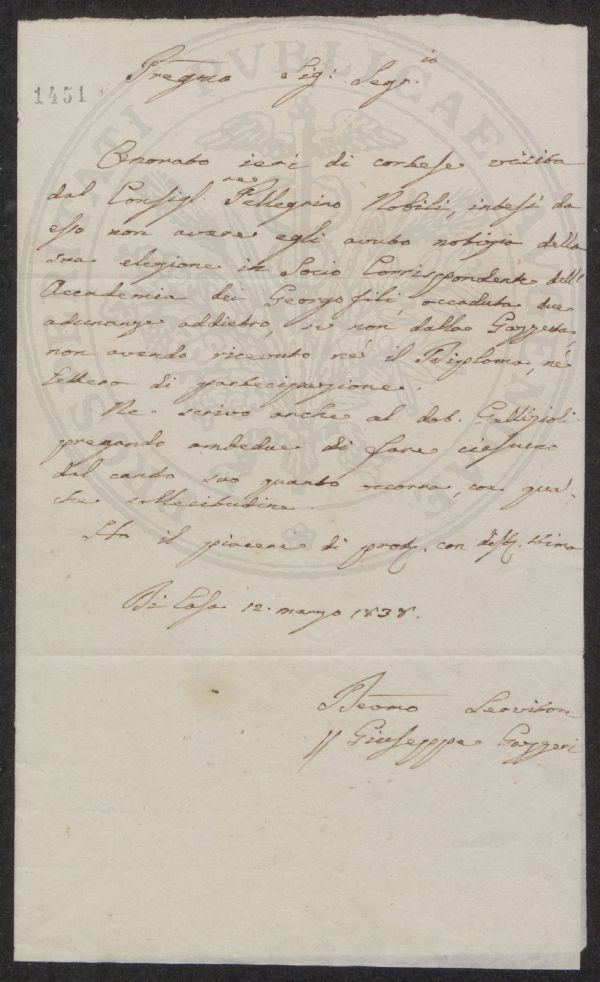 1451
Pregmo Sig: Segr.io
Onorato ieri di cortese visita
dal Consigl.re Pellegrino Nobili, intesi da
esso non avere egli avuto notizia della
sua elezione in Socio Corrispondente dell'
Accademia dei Georgofili, accaduta due
adunanze addietro, se non dalla Gazzetta,
non avendo ricevuto nè il Diploma, nè
lettera di partecipazione.
Ne scrivo anche al dot. Gallizioli
pregando ambedue di fare ciascuno
dal canto suo quanto occorra, con qual-
che sollecitudine.
Ho il piacere di prot. con dist. stima
Di Casa 12. marzo 1838.
Devmo Servitore
Giuseppe Gazzeri